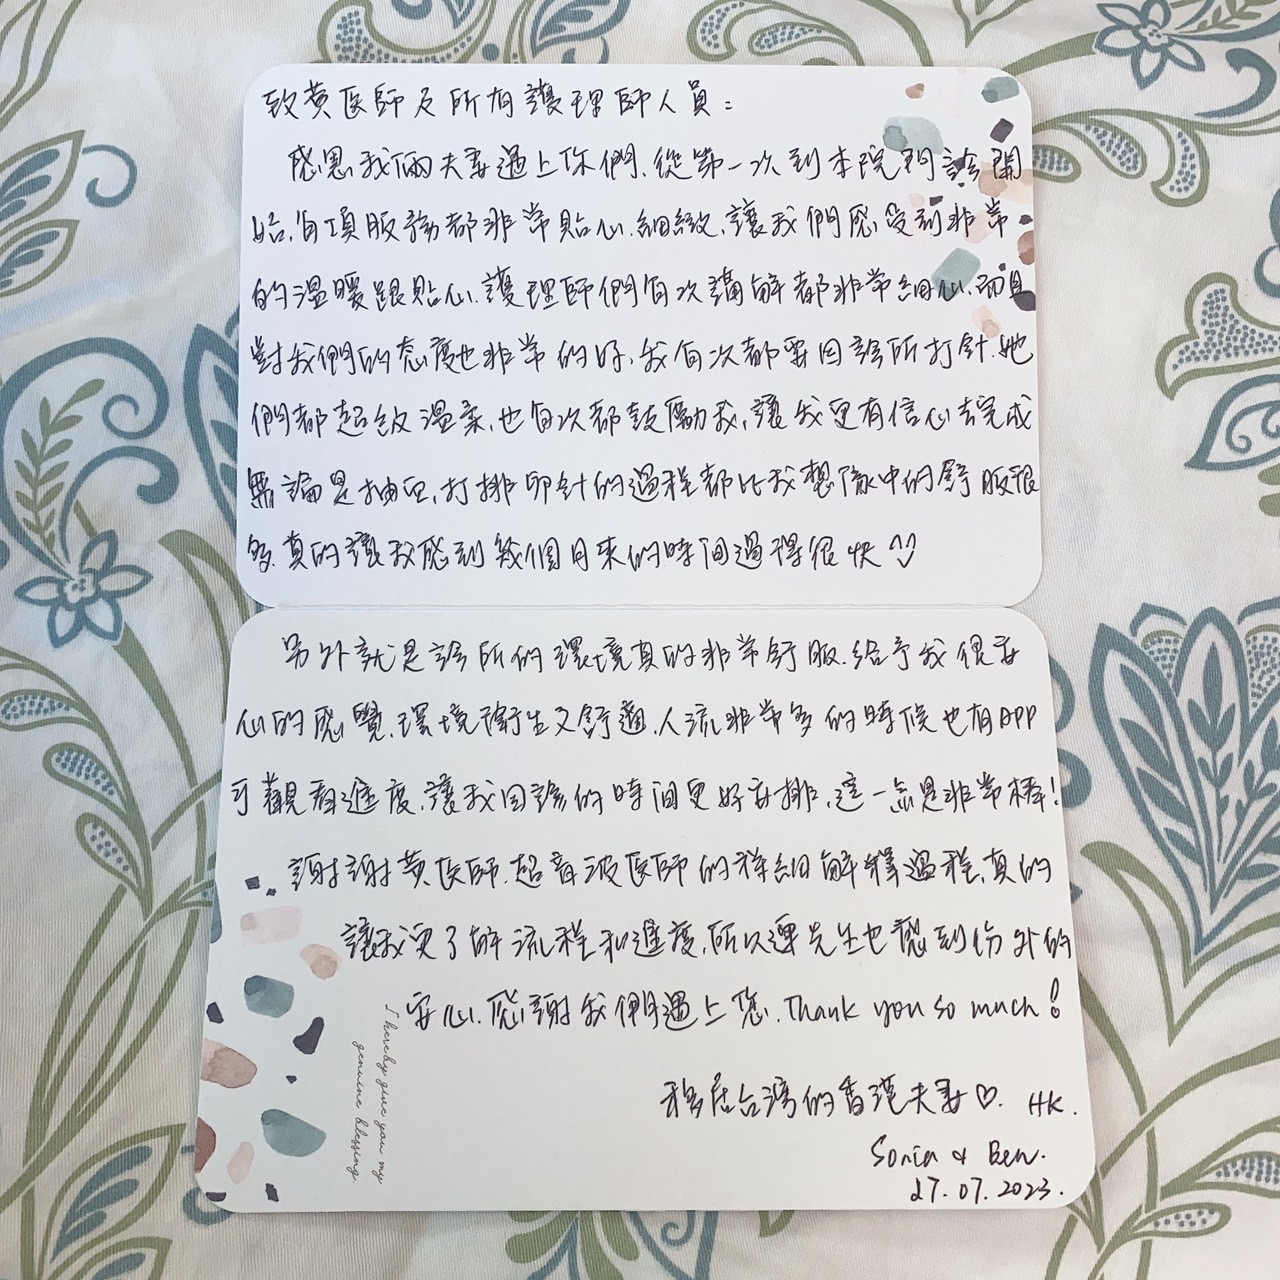 致黃医師及所有護理師人員：
感恩我倆夫妻遇上你們、從第一次到本院門診開
始、每項服務都非常貼心、細緻、讓我們感受到非常
的溫暖跟貼心、護理師們每次講解都非常細心、而且
對我們的態度也非常的好、我每次都要回診所打針、她
們都超級溫柔、也每次都鼓勵我、讓我更有信心去完成
無論是抽血、打排卵針的過程都比我想像中的舒服很
多、真的讓我感到幾個月來的時間過得很快
另外就是診所的環境真的非常舒服、給予我很安
心的感覺、環境衛生又舒適、人流非常多的時候也有APP
可觀看進度、讓我回診的時間更好安排、這一点是非常棒！
謝謝黃医師、超音波医師的詳細解釋過程、真的
讓我更了解流程和進度、所以連先生也感到份外的
安心、感謝我們遇上您、Thank you so much！
移居台灣的香港夫妻♡. HK.
Sonia & Ben.
27.07.2023.
I hereby give you my
genuine blessing.